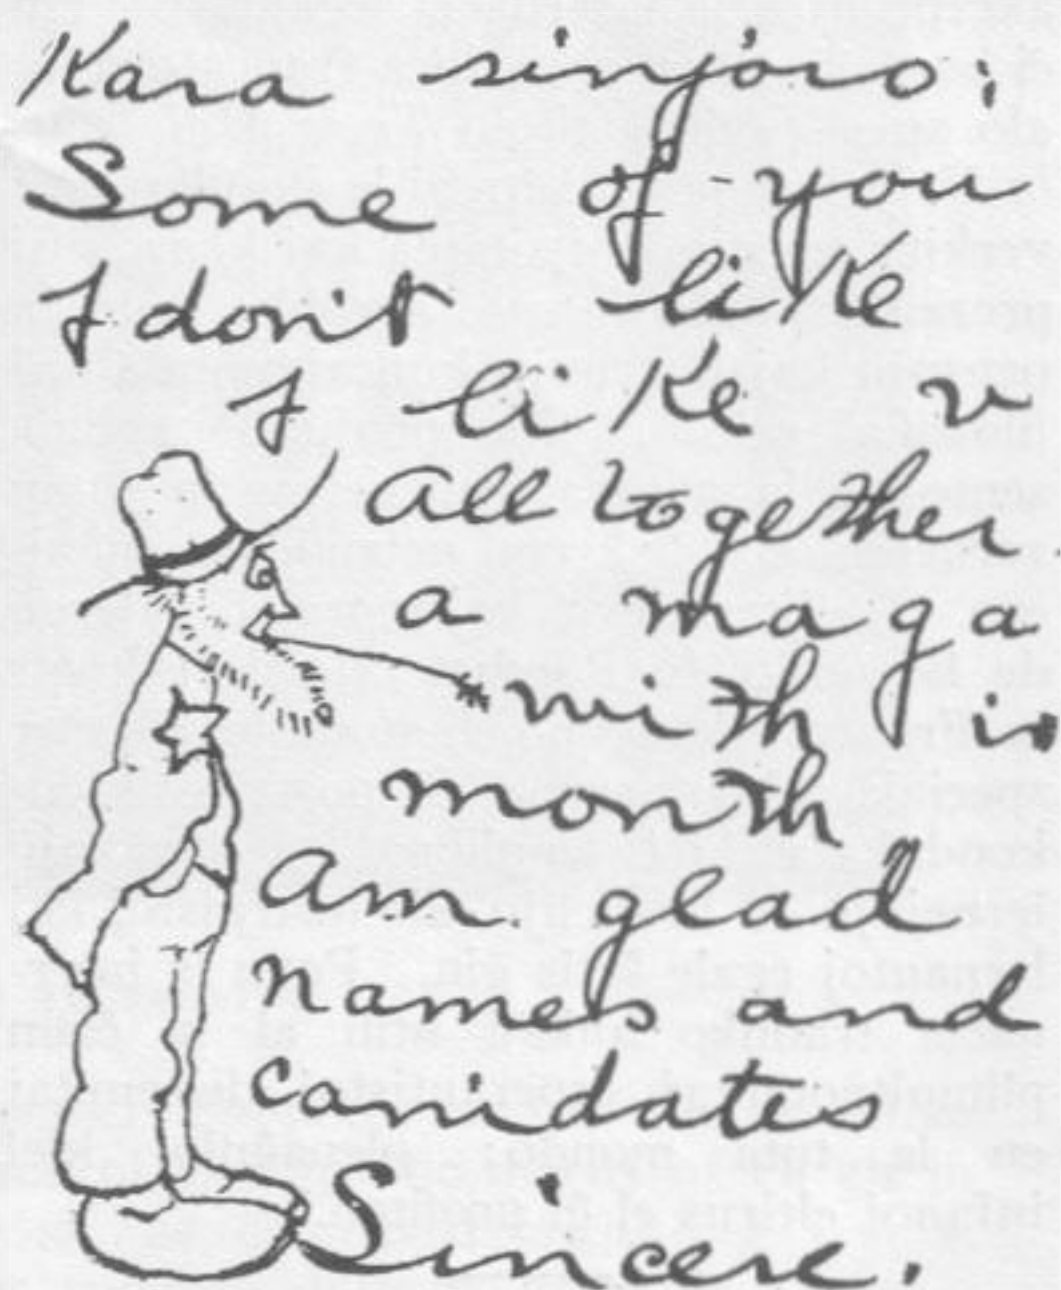 Kara sinjoro;
Some of you
I don't like
I like v
all together
a maga
with is
month
am glad
names and
canidates
Sincere.